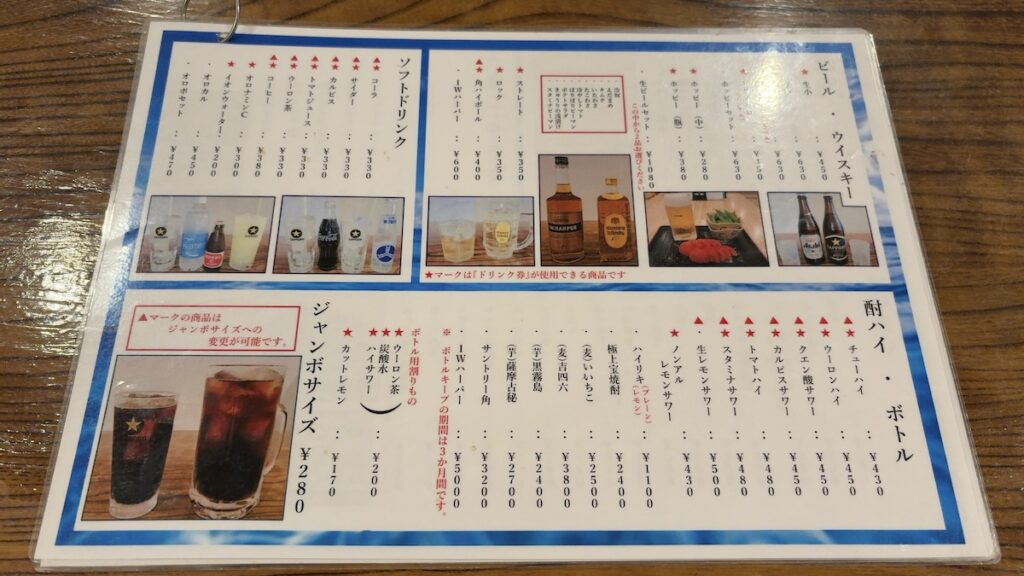 ビール ・ ウイスキー
★ 生小 ： ￥350
￥450
￥630
￥350
ホッピーセット ： ￥630
★ ホッピー（中） ： ￥280
★ ホッピー（瓶） ： ￥380
・ 生ビールセット ： ￥1080
この中から2品お選びください
冷奴
えだまめ
キムチ
いたわさ
たこわさ
冷やしトマト
ポテトサラダ
きゅうりの浅漬け
スタミナピーマン
★ ストレート ： ￥350
★ ロック ： ￥350
▲★ 角ハイボール ： ￥400
・ IWハーパー ： ￥600
★マークは『ドリンク券』が使用できる商品です
ソフトドリンク
▲★ コーラ ： ￥330
▲★ サイダー ： ￥330
▲★ カルピス ： ￥330
▲★ トマトジュース ： ￥330
▲★ ウーロン茶 ： ￥330
▲★ コーヒー ： ￥380
★ オロナミンC ： ￥300
★ イオンウォーター ： ￥300
・ オロカル ： ￥200
・ オロポセット ： ￥470
酎ハイ ・ ボトル
▲★ チューハイ ： ￥430
▲★ ウーロンハイ ： ￥450
▲★ クエン酸サワー ： ￥450
▲★ カルピスサワー ： ￥480
▲★ トマトハイ ： ￥480
▲★ スタミナサワー ： ￥480
▲★ 生レモンサワー ： ￥500
★ ノンアル
レモンサワー ： ￥430
・ ハイリキ（プレーン）（レモン） ： ￥1100
・ 極上宝焼酎 ： ￥2400
・ （麦）いいちこ ： ￥2500
・ （麦）吉四六 ： ￥3800
・ （芋）黒霧島 ： ￥2400
・ （芋）薩摩古秘 ： ￥2700
・ サントリー角 ： ￥3200
・ IWハーパー ： ￥5000
※ ボトルキープの期間は3か月間です。
ボトル用割りもの
★ ウーロン茶
★ 炭酸水
★ ハイサワー
： ￥200
★ カットレモン ： ￥170
ジャンボサイズ ￥280
▲マークの商品は
ジャンボサイズへの
変更が可能です。